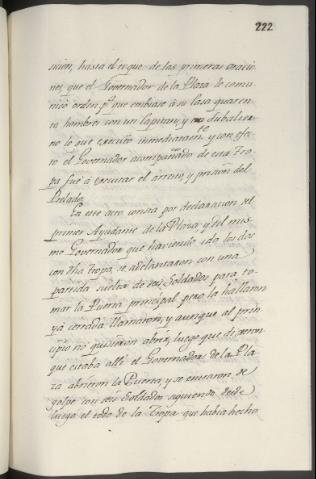 222
sicion, hasta el toque de las primeras oracio
nes, que el Governador de la Plaza le comu
nicó orden p.ª que embiase á su Casa quaren
ta hombres con un Capitan, y un Subalter
no lo que executo inmediatam.te y con efec
to el Governador acompañado de esta Tro
pa fué á executar el arresto, y prision del
Prelado.
En este acto consta por declaracion del
primer Ayudante de la Plaza, y del mis
mo Governador que haviendo ido los dos
con dha Tropa, se adelantaron con una
partida suelta de seis Soldados para to
mar la Puerta principal pero la hallaron
ya cerrada llamaron, y aunque al prin
cipio no quisieron abrir, luego que dixeron
que estaba allí el Governador de la Pla
za abrieron la Puerta, y se entraron de
golpe con seis Soldados siguiendo desde
luego el resto de la Tropa que havia hecho